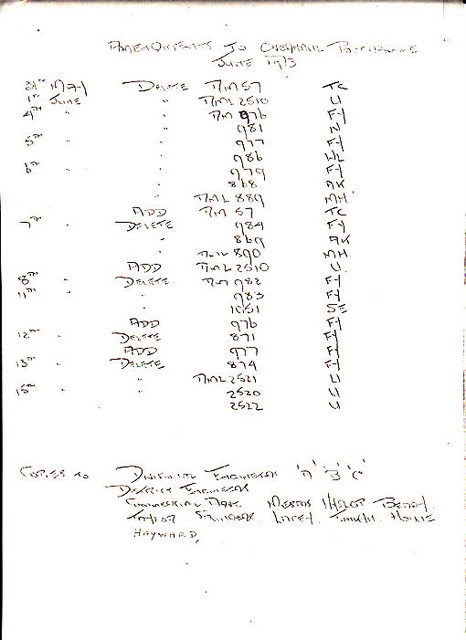 Amendments to Overhaul Programme
June 1973
31st May Delete RM 57 TC
1st June " RML 2510 U
4th " " RM 976 FY
" 981 N
5th " " 977 FY
" 986 WL
6th " " 979 FY
" 868 AK
" RML 889 MH
Add RM 57 TC
7th " Delete 984 FY
" 869 AK
" RML 890 MH
Add RML 2510 U
8th " Delete RM 982 FY
11th " " 983 FY
" 1051 SE
Add 976 FY
12th " Delete 871 FY
Add 977 FY
13th " Delete 874 FY
" RML 2521 U
15th " " 2520 U
2522 U
Copies to Divisional Engineer 'A' 'B' 'C'
District Engineers
Engineering Messrs Beath
Taylor Lacey
Hayward,